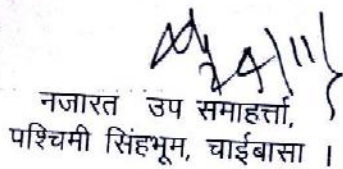 24/11
नजारत उप समाहर्त्ता,
पश्चिमी सिंहभूम, चाईबासा ।